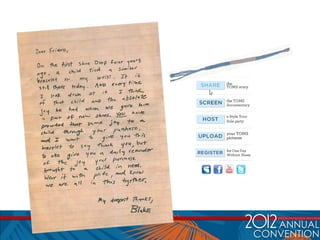 Dear Friend,
On the first Shoe Drop four years
ago, a child tied a similar
bracelet on my wrist. It is
still there today. And every time
I look down at it I think
of that child and the absolute
joy he had when we gave him
a pair of new shoes. You have
provided that same joy to a
child through your purchase,
and I want to give you this
bracelet to say thank you, but
to also give you a daily reminder
of the joy your purchase
brought to a child in need.
Wear it with pride, and know
we are all in this together.
My deepest Thanks,
Blake
SHARE the TOMS story
SCREEN the TOMS documentary
HOST a Style Your Sole party
UPLOAD your TOMS pictures
REGISTER for One Day Without Shoes
2012 ANNUAL
CONVENTION